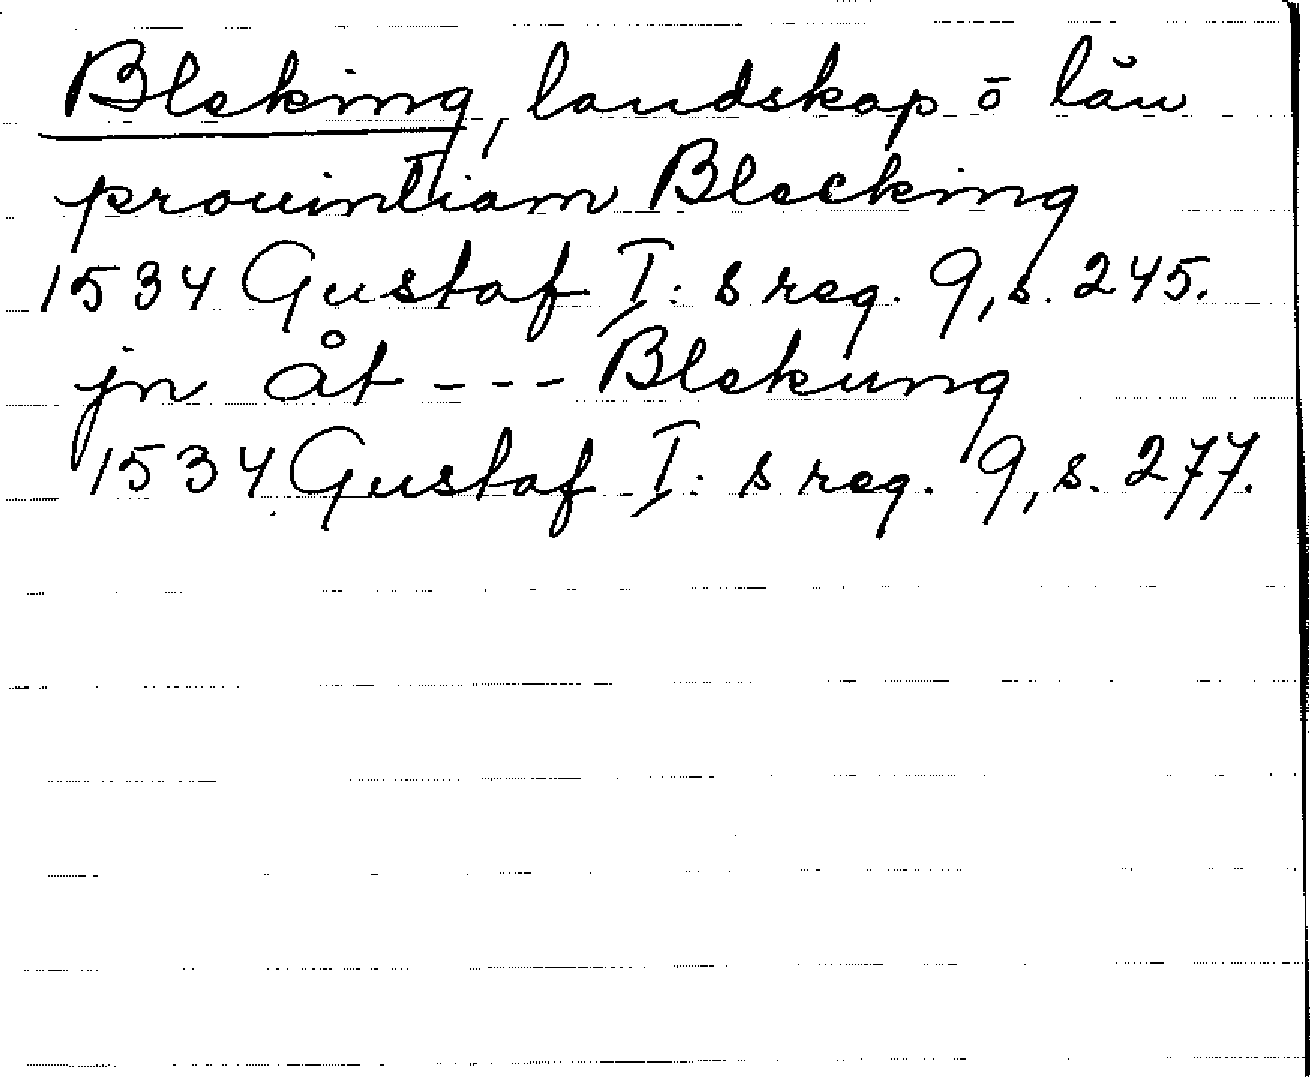 Bleking, landskap o län
prouintiam Blecking
1534 Gustaf I:s reg. 9, s. 245.
jn åt --- Blekung
1534 Gustaf I:s reg. 9, s. 277.